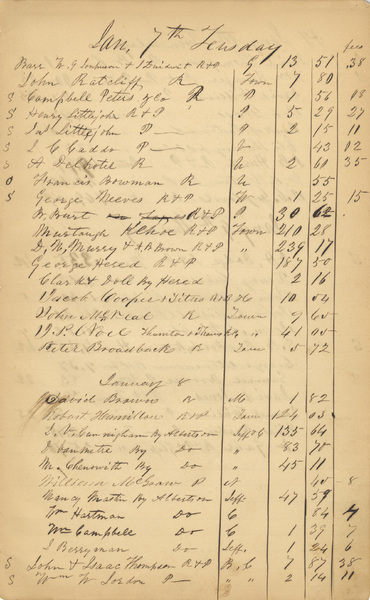 Jan, 7th Tuesday fees
Barr W. G. & R & P G 13 51 .38
John Ratcliff R Town 7 80
S Campbell Peters & Co R P 1 56 08
S Henry Littlejohn R & P P 5 29 27
S Jas Littlejohn P — P 2 15 11
S L C Caddo P — 43 02
S A Delhotel R U 2 60 35
O Francis Bowman R U 55
S George Meeves R & P W 1 25 15
B. Burt R & P P 30 62
Murtaugh Kehoe R & P Town 210 28
D, W, Murry & A B Brown R & P " 239 17
George Hered R & P 187 50
Clark & Doll By Hered 2 16
Jacob Cooper & Titus R & P 10 04
John McNeal R Town 9 65
Noel Thornton & " 41 05
Peter Broadback R Town 5 72
January 8
David Brown R M 1 82
Robert Hamillan R & P Town 124 05
J. N. Cunningham By Albertson Jeff C 135 64
J Vanmetre By Do " 83 70
Mr. Chenowith By Do " 45 11
William McGraw P N 40 8
Nancy Martin By Albertson Jeff 47 59
Wm Hartman Do C 84 4
Wm Campbell Do C 1 39 7
J Berryman Do Jeff. 1 24 6
S John & Isaac Thompson R & P B, C 7 87 38
S Wm W Jordon P — " " 2 14 11